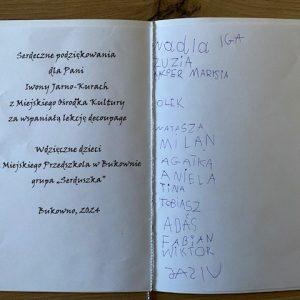 Serdeczne podziękowania
dla Pani
Iwony Jarno-Kurach
z Miejskiego Ośrodka Kultury
za wspaniałą lekcję decoupage
Wdzięczne dzieci
Miejskiego Przedszkola w Bukownie
grupa „Serduszka"
Bukowno, 2024
IGA
ZUZIA
MARISIA
OLEK
NATASZA
MILAN
AGATKA
ANIELA
TINA
TOBIASZ
ADAŚ
FABIAN
WIKTOR